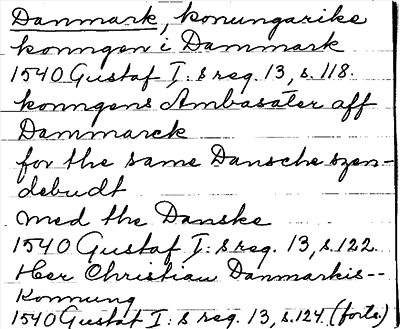 Danmark, konungarike
konngen i Dammark
1540 Gustaf I: s reg. 13, s. 118.
konngens Ambasäter aff
Dammarck
for the same Dansche szen-
debudt
med the Danske
1540 Gustaf I: s reg. 13, s. 122
Her Christian Danmarkis--
Konnung
1540 Gustaf I: s reg. 13, s. 124 (forts.)